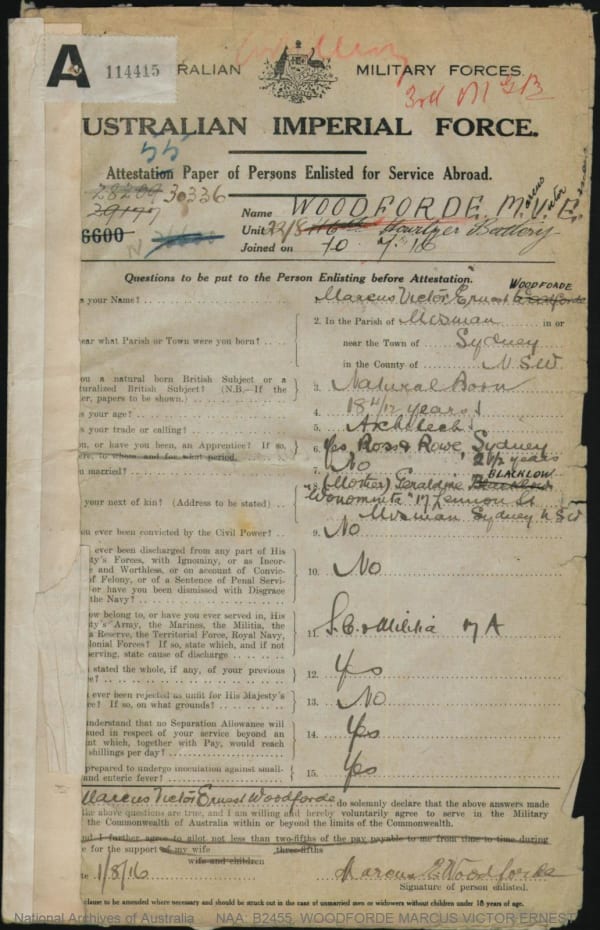 A 114415 RALIAN MILITARY FORCES.
3rd M G B
USTRALIAN IMPERIAL FORCE.
55
Attestation Paper of Persons Enlisted for Service Abroad.
28209 30336
29197
6600
Name WOODFORDE. M. V. E.
Unit 22/8 116th Howitzer Battery
Joined on 10 7 16
Questions to be put to the Person Enlisting before Attestation.
WOODFORDE
s your Name? Marcus Victor Ernest Woodforde
2. In the Parish of Mosman in or
ear what Parish or Town were you born? near the Town of Sydney
in the County of N.S.W.
ou a natural born British Subject or a
turalized British Subject? (N.B.—If the
er, papers to be shown.) 3. Natural Born
s your age? 4. 18 years
s your trade or calling? 5. Architect
u, or have you been, an Apprentice? If so,
ere, to whom and for what period. 6. Yes, Ross & Rowe, Sydney
2 1/2 years
u married? 7. No
BLACKLOW
8. (Mother) Geraldine Blacklow
your next of kin? (Address to be stated) "Wonominta" 17 Lennon St
Mosman Sydney N S W
ou ever been convicted by the Civil Power? 9. No
ever been discharged from any part of His
ty's Forces, with Ignominy, or as Incor-
e and Worthless, or on account of Convic-
of Felony, or of a Sentence of Penal Servi-
or have you been dismissed with Disgrace
the Navy? 10. No
ow belong to, or have you ever served, in His
ty's Army, the Marines, the Militia, the
a Reserve, the Territorial Force, Royal Navy,
olonial Forces? If so, state which, and if not
serving, state cause of discharge 11. S.C. & Militia 7 A
stated the whole, if any, of your previous
ce? 12. Yes
ever been rejected as unfit for His Majesty's
ce? If so, on what grounds? 13. No
understand that no Separation Allowance will
sued in respect of your service beyond an
nt which, together with Pay, would reach
shillings per day? 14. Yes
prepared to undergo inoculation against small-
and enteric fever? 15. Yes
Marcus Victor Ernest Woodforde do solemnly declare that the above answers made
the above questions are true, and I am willing and hereby voluntarily agree to serve in the Military
the Commonwealth of Australia within or beyond the limits of the Commonwealth.
nd I further agree to allot not less than two-fifths of the pay payable to me from time to time during
e for the support of my wife three-fifths
wife and children
te 1/8/16 Marcus V Woodforde
Signature of person enlisted.
clause to be amended where necessary and should be struck out in the case of unmarried men or widowers without children under 18 years of age.
National Archives of Australia NAA: B2455, WOODFORDE MARCUS VICTOR ERNEST